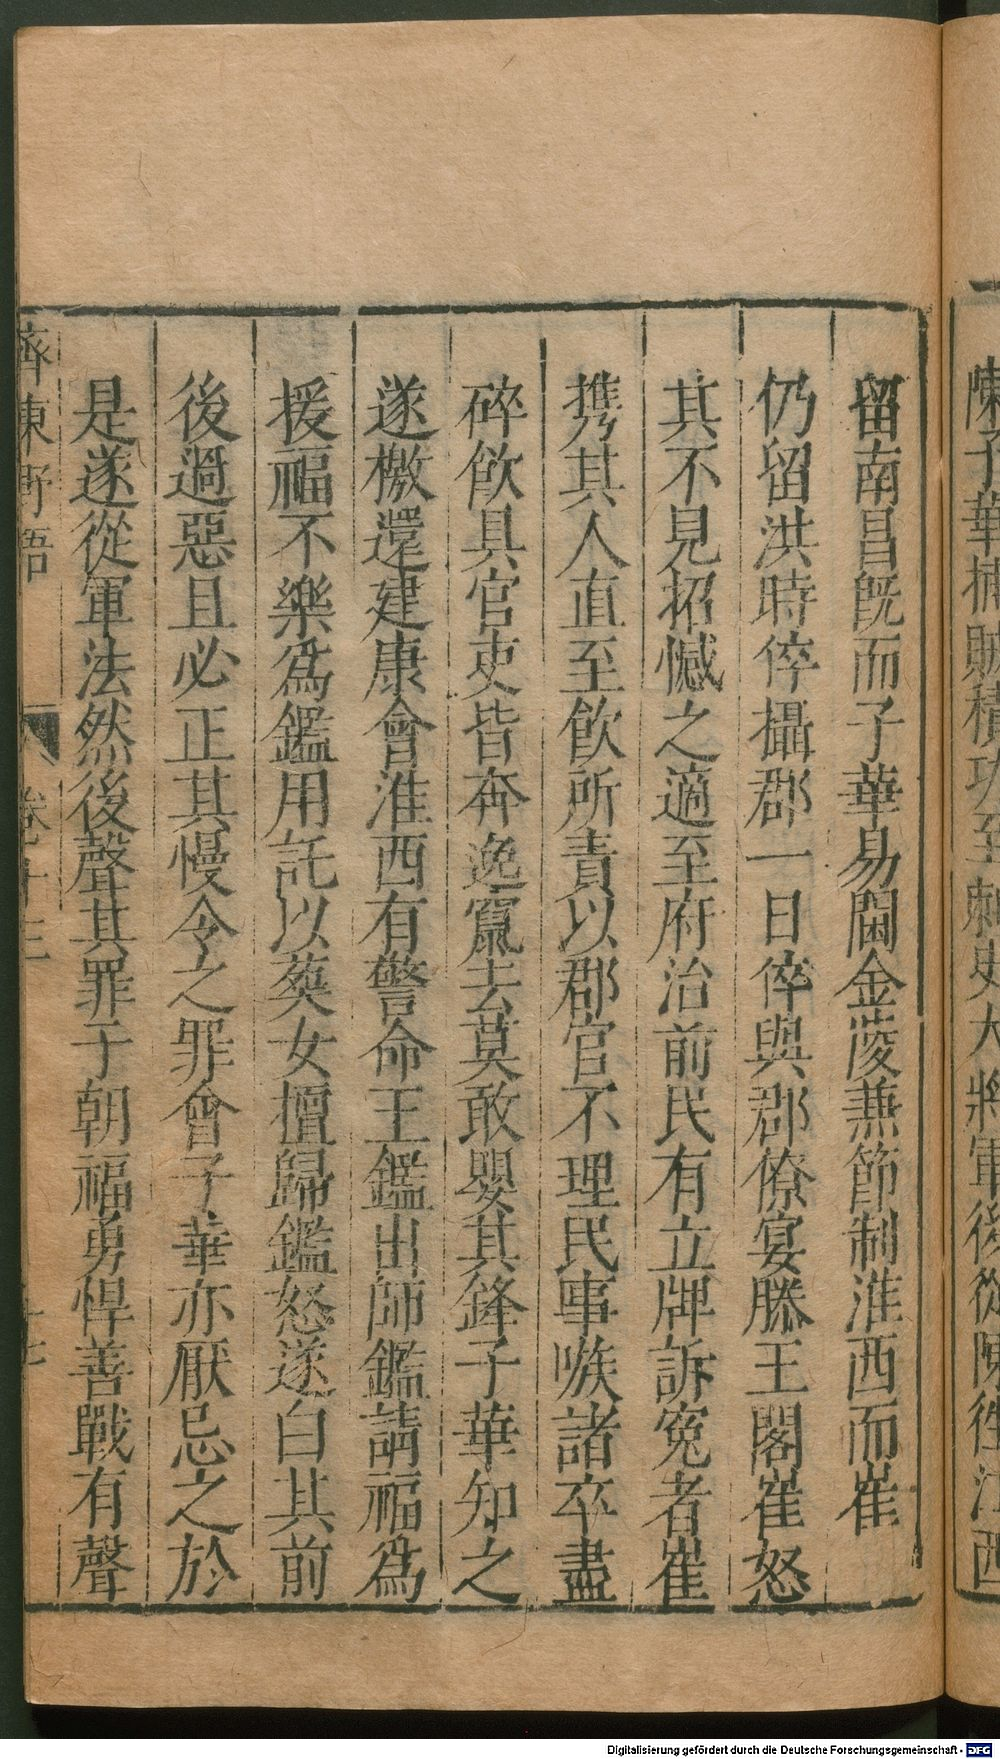 留南昌旣而子華易閫金陵兼節制淮西而崔
仍留洪時倅攝郡一日倅與郡僚宴滕王閣崔怒
其不見招憾之適至府治前民有立牌訴寃者崔
携其人直至飲所責以郡官不理民事嗾諸卒盡
碎飲具官吏皆奔逸竄去莫敢嬰其鋒子華知之
遂檄還建康會淮西有警命王鑑出師鑑請福爲
援福不樂爲鑑用託以葬女擅歸鑑怒遂白其前
後過惡且必正其慢令之罪會子華亦厭忌之於
是遂從軍法然後聲其罪于朝福勇悍善戰有聲
齊東野語 卷十三
嗾子華捕賊積功至刺史大將軍後從陳往江西
Digitalisierung gefördert durch die Deutsche Forschungsgemeinschaft - DFG